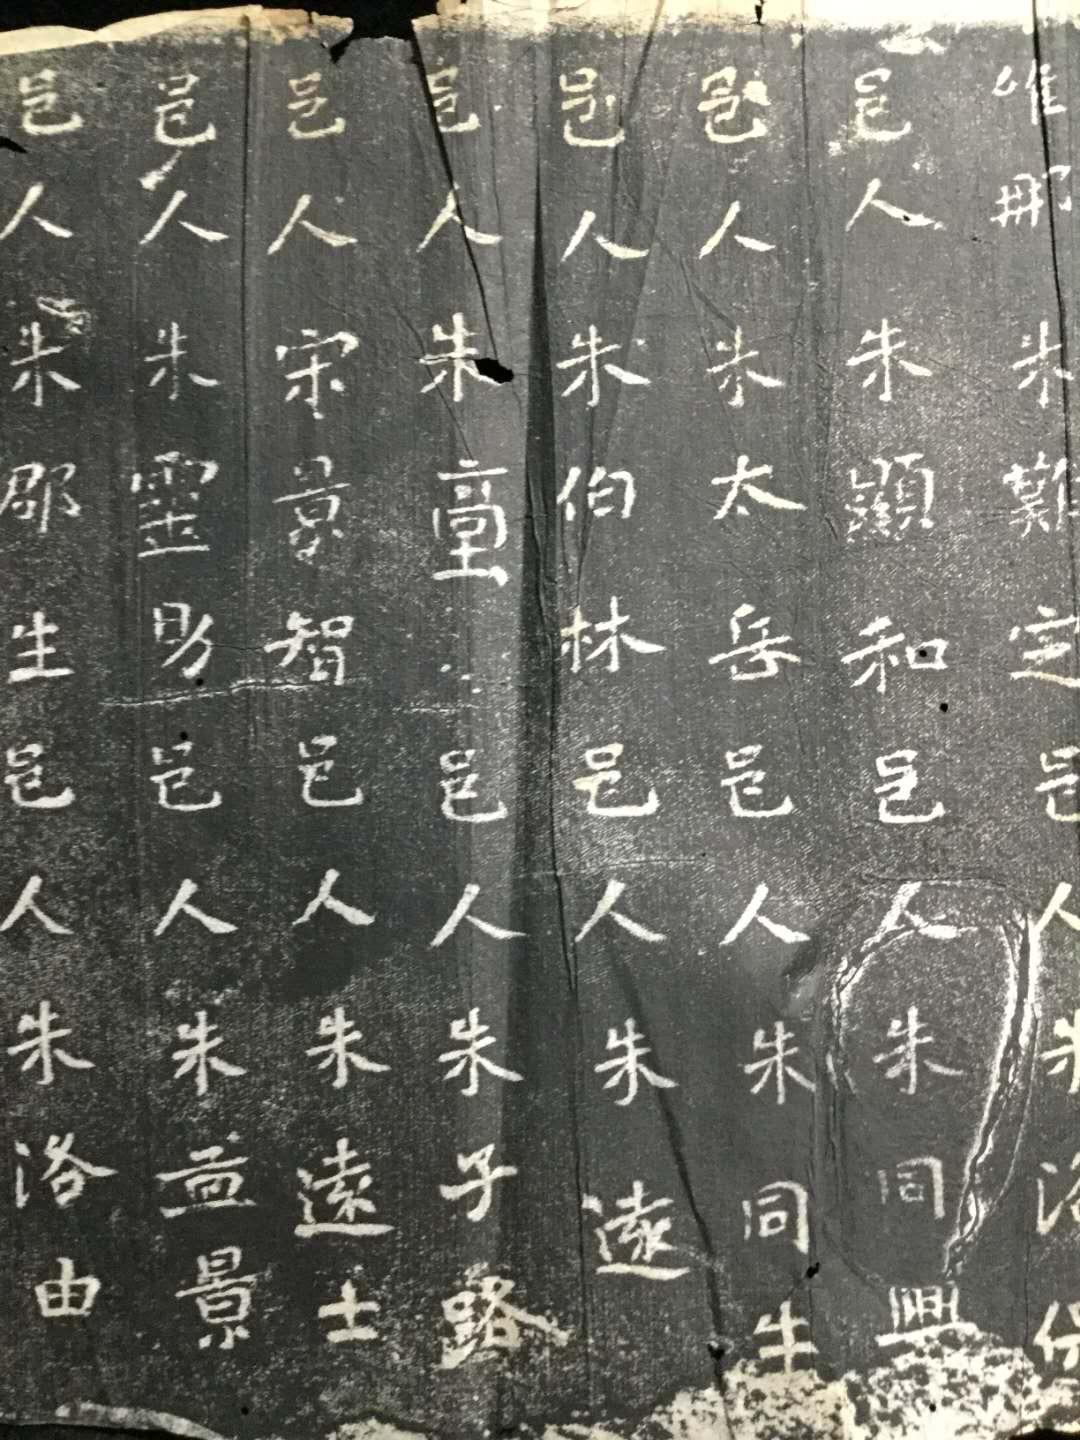 唯那朱難定邑人朱洛保
邑人朱顯和邑人朱同興
邑人朱太岳邑人朱同生
邑人朱伯林邑人朱遠
邑人朱邑人朱子路
邑人宋景智邑人朱遠士
邑人朱靈助邑人朱景
邑人朱郡生邑人朱洛由